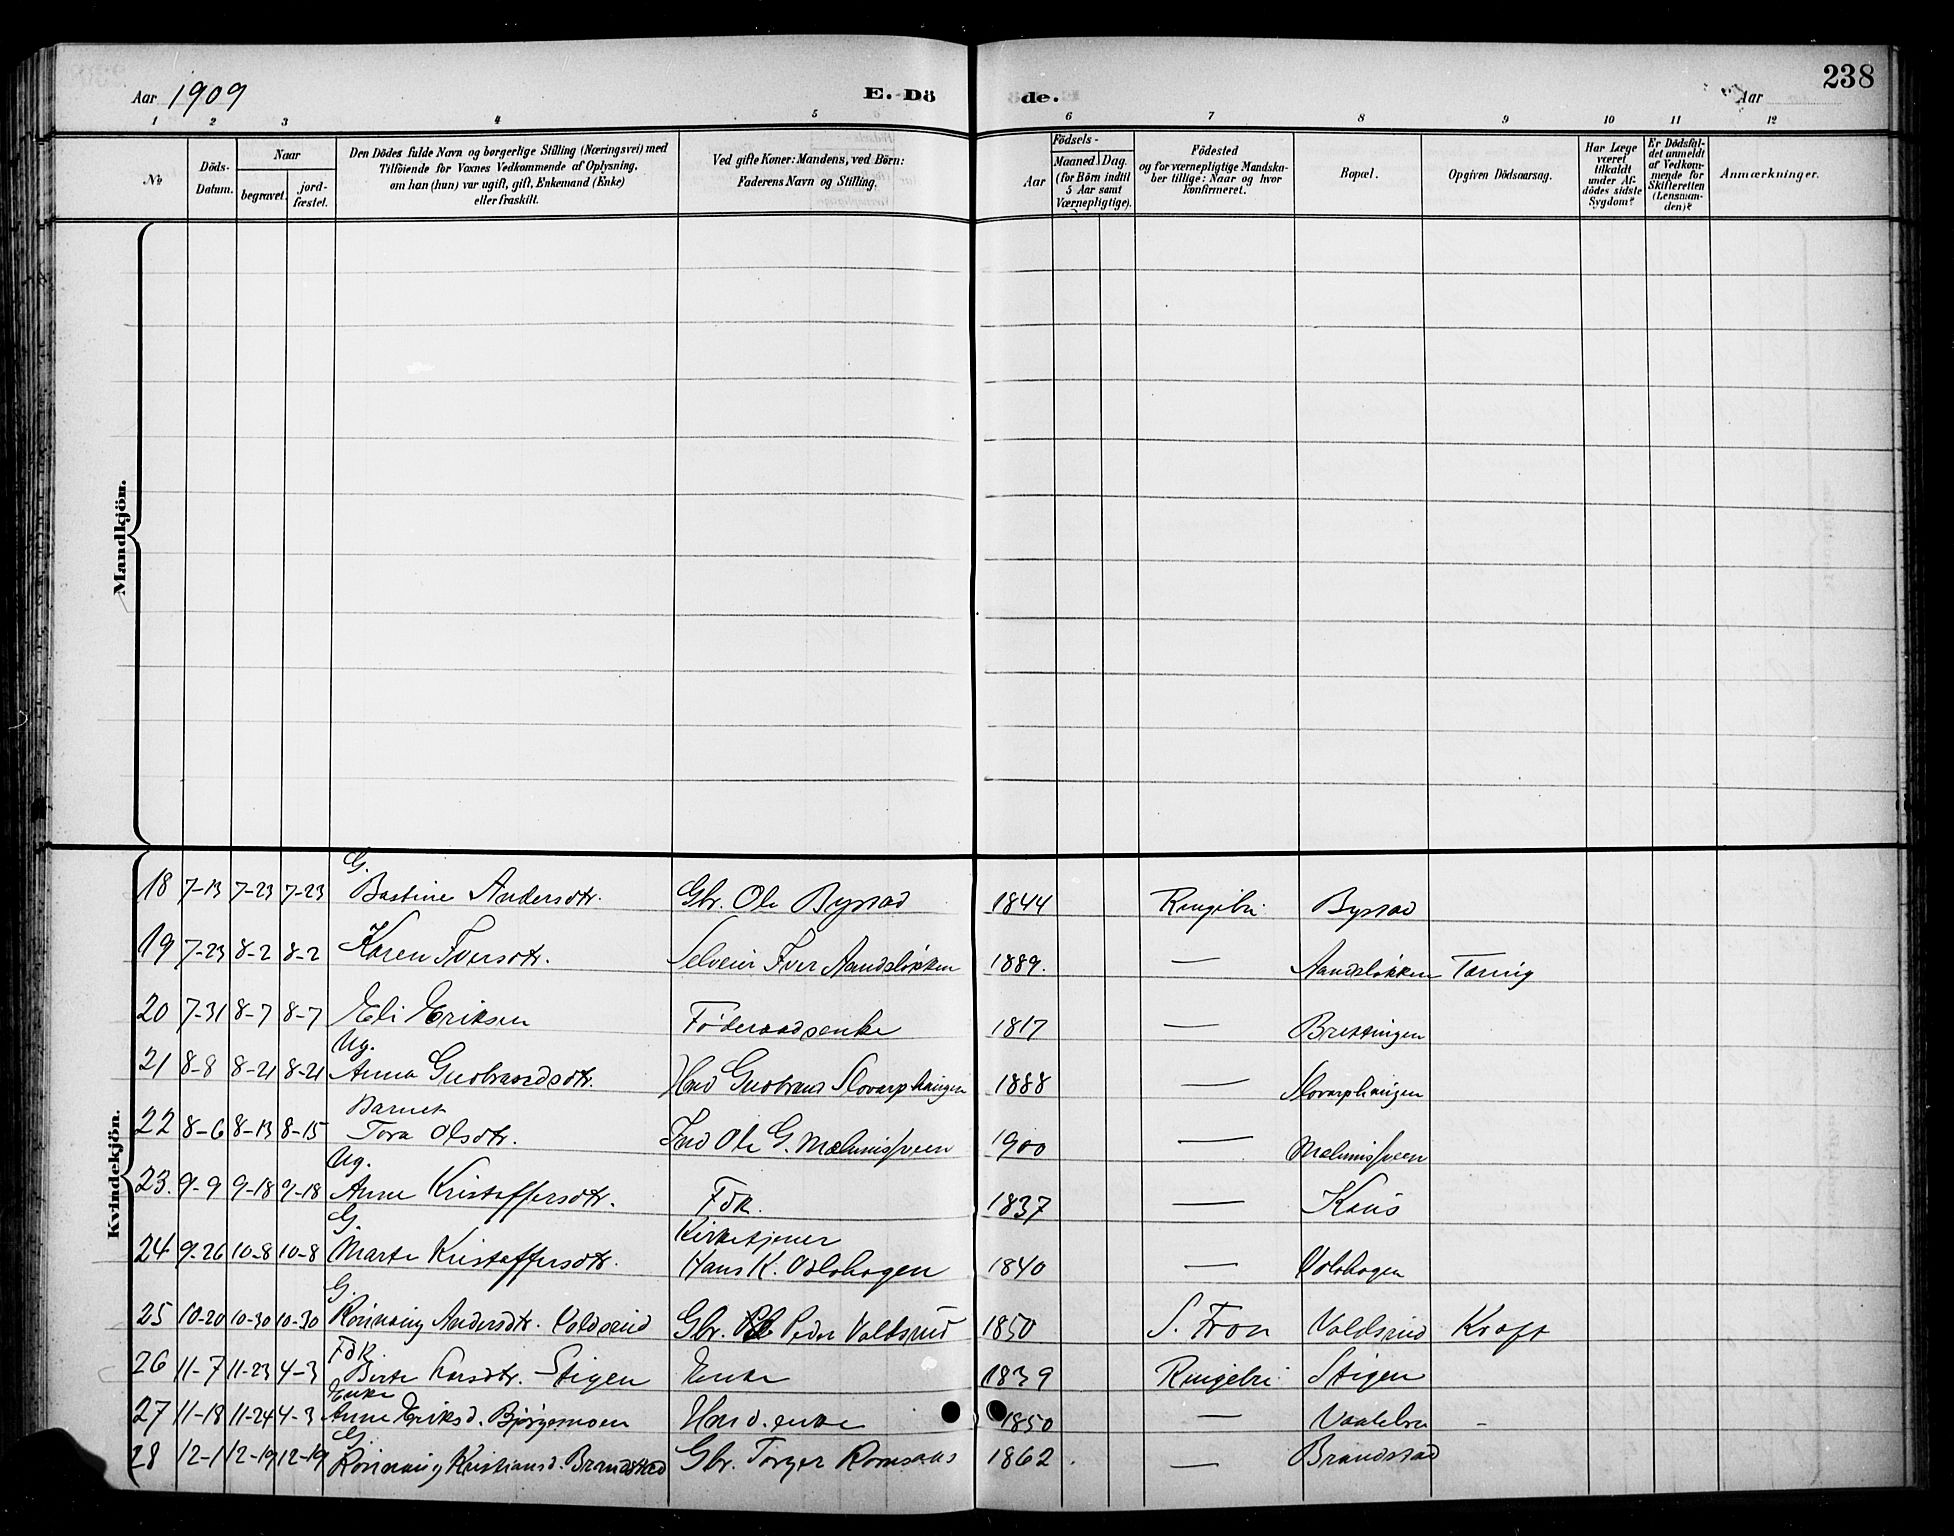 Aar 1909
E. Dö
de.
Aar
238
1 2 3 4 5 6 7 8 9 10 11 12
No
Döds-
Datum.
Naar
begravet.
jord-
fæstet.
Den Dödes fulde Navn og borgerlige Stilling (Næringsvei) med
Tilföiende for Voxnes Vedkommende af Oplysning,
om han (hun) var ugift, gift, Enkemand (Enke)
eller fraskilt.
Ved gifte Koner: Mandens, ved Börn:
Faderens Navn og Stilling.
Födsels-
Aar
Maaned. Dag.
(for Börn indtil
5 Aar samt
Værnepligtige).
Födested
og for værnepligtige Mandska-
ber tillige: Naar og hvor
konfirmeret.
Bopæl.
Opgiven Dödsaarsag.
Har Læge
været
tilkaldt
under Af-
dödes sidste
Sygdom?
Er Dödsfal-
det anmeldt
af Vedkom-
mende for
Skifteretten
(Lensman-
den)?
Anmærkninger.
Mandkjön.
Kvindekjön.
G.
18 7-13 7-23 7-23 Bastine Andersdtr. Gbr. Ole Bystad 1844 Ringebu Bystad
19 7-23 8-2 8-2 Karen Iversdtr. Selveier Iver Aandsløkken 1889. — Aandsløkken Tæring
20 7-31 8-7 8-7 Eli Eriksen Føderaadsenke 1817 — Brettingen
Ug.
21 8-8 8-21 8-21 Anna Gudbrandsdtr. Hmd Gudbrand 1888 —
Barnet
22 8-6 8-13 8-15 Tora Olsdtr. Ole G. 1900 —
Ug.
23. 9-9 9-18 9-18 Anne Kristoffersdtr. Fdk. 1837 —
G. Kirketjener
24 9-26 10-8 10-8 Marte Kristoffersdtr. Hans K. 1840 —
G.
25 10-20 10-30 10-30 Rønnaug Andersdtr. Voldsrud Gbr. Peder Voldsrud 1850 S. Fron Voldsrud Kræft
Fdk.
26 11-7 11-23 4-3 Berte Larsdtr. Stigen Enke 1839 Ringebu Stigen
Enke
27 11-18 11-24 4-3 Anne Eriksd. Bjørgemoen Husm.enke 1850 — Vaalebru -
G.
28 12-1 12-19 12-19 Rønnaug Kristiansd. Brandstad Gbr. Torger Romsaas 1862 — Brandstad